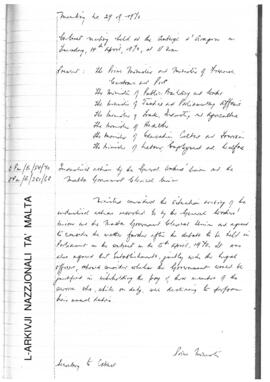 Meeting No 29 of 1970
Cabinet meeting held at the Auberge d'Aragon on
Tuesday, 14th April, 1970, at 10 am
Present: the Prime Minister and Minister of Finance
Customs and Port
the Minister of Public Building and Works
the Minister of Justice and Parliamentary Affairs
the Minister of Trade, Industry and Agriculture
the Minister of Health
the Minister of Education Culture and Tourism
the Minister of Labour Employment and Welfare
Industrial action by the General Workers' Union and the
Malta Government Clerical Union
Ministers considered the situation arising of the
industrial action resorted to by the General Workers'
Union and the Malta Government Clerical Union and agreed
to consider the matter further after the debate to be held in
Parliament on the subject on the April, 1970. It was
also agreed that Establishments, jointly with the Legal
Officer, should consider whether the Government would be
justified in withholding the pay of those members of the
service who, while on duty, were declining to perform
their normal duties.
Prime Minister
Secretary to Cabinet
L-ARKIVJI NAZZJONALI TA' MALTA